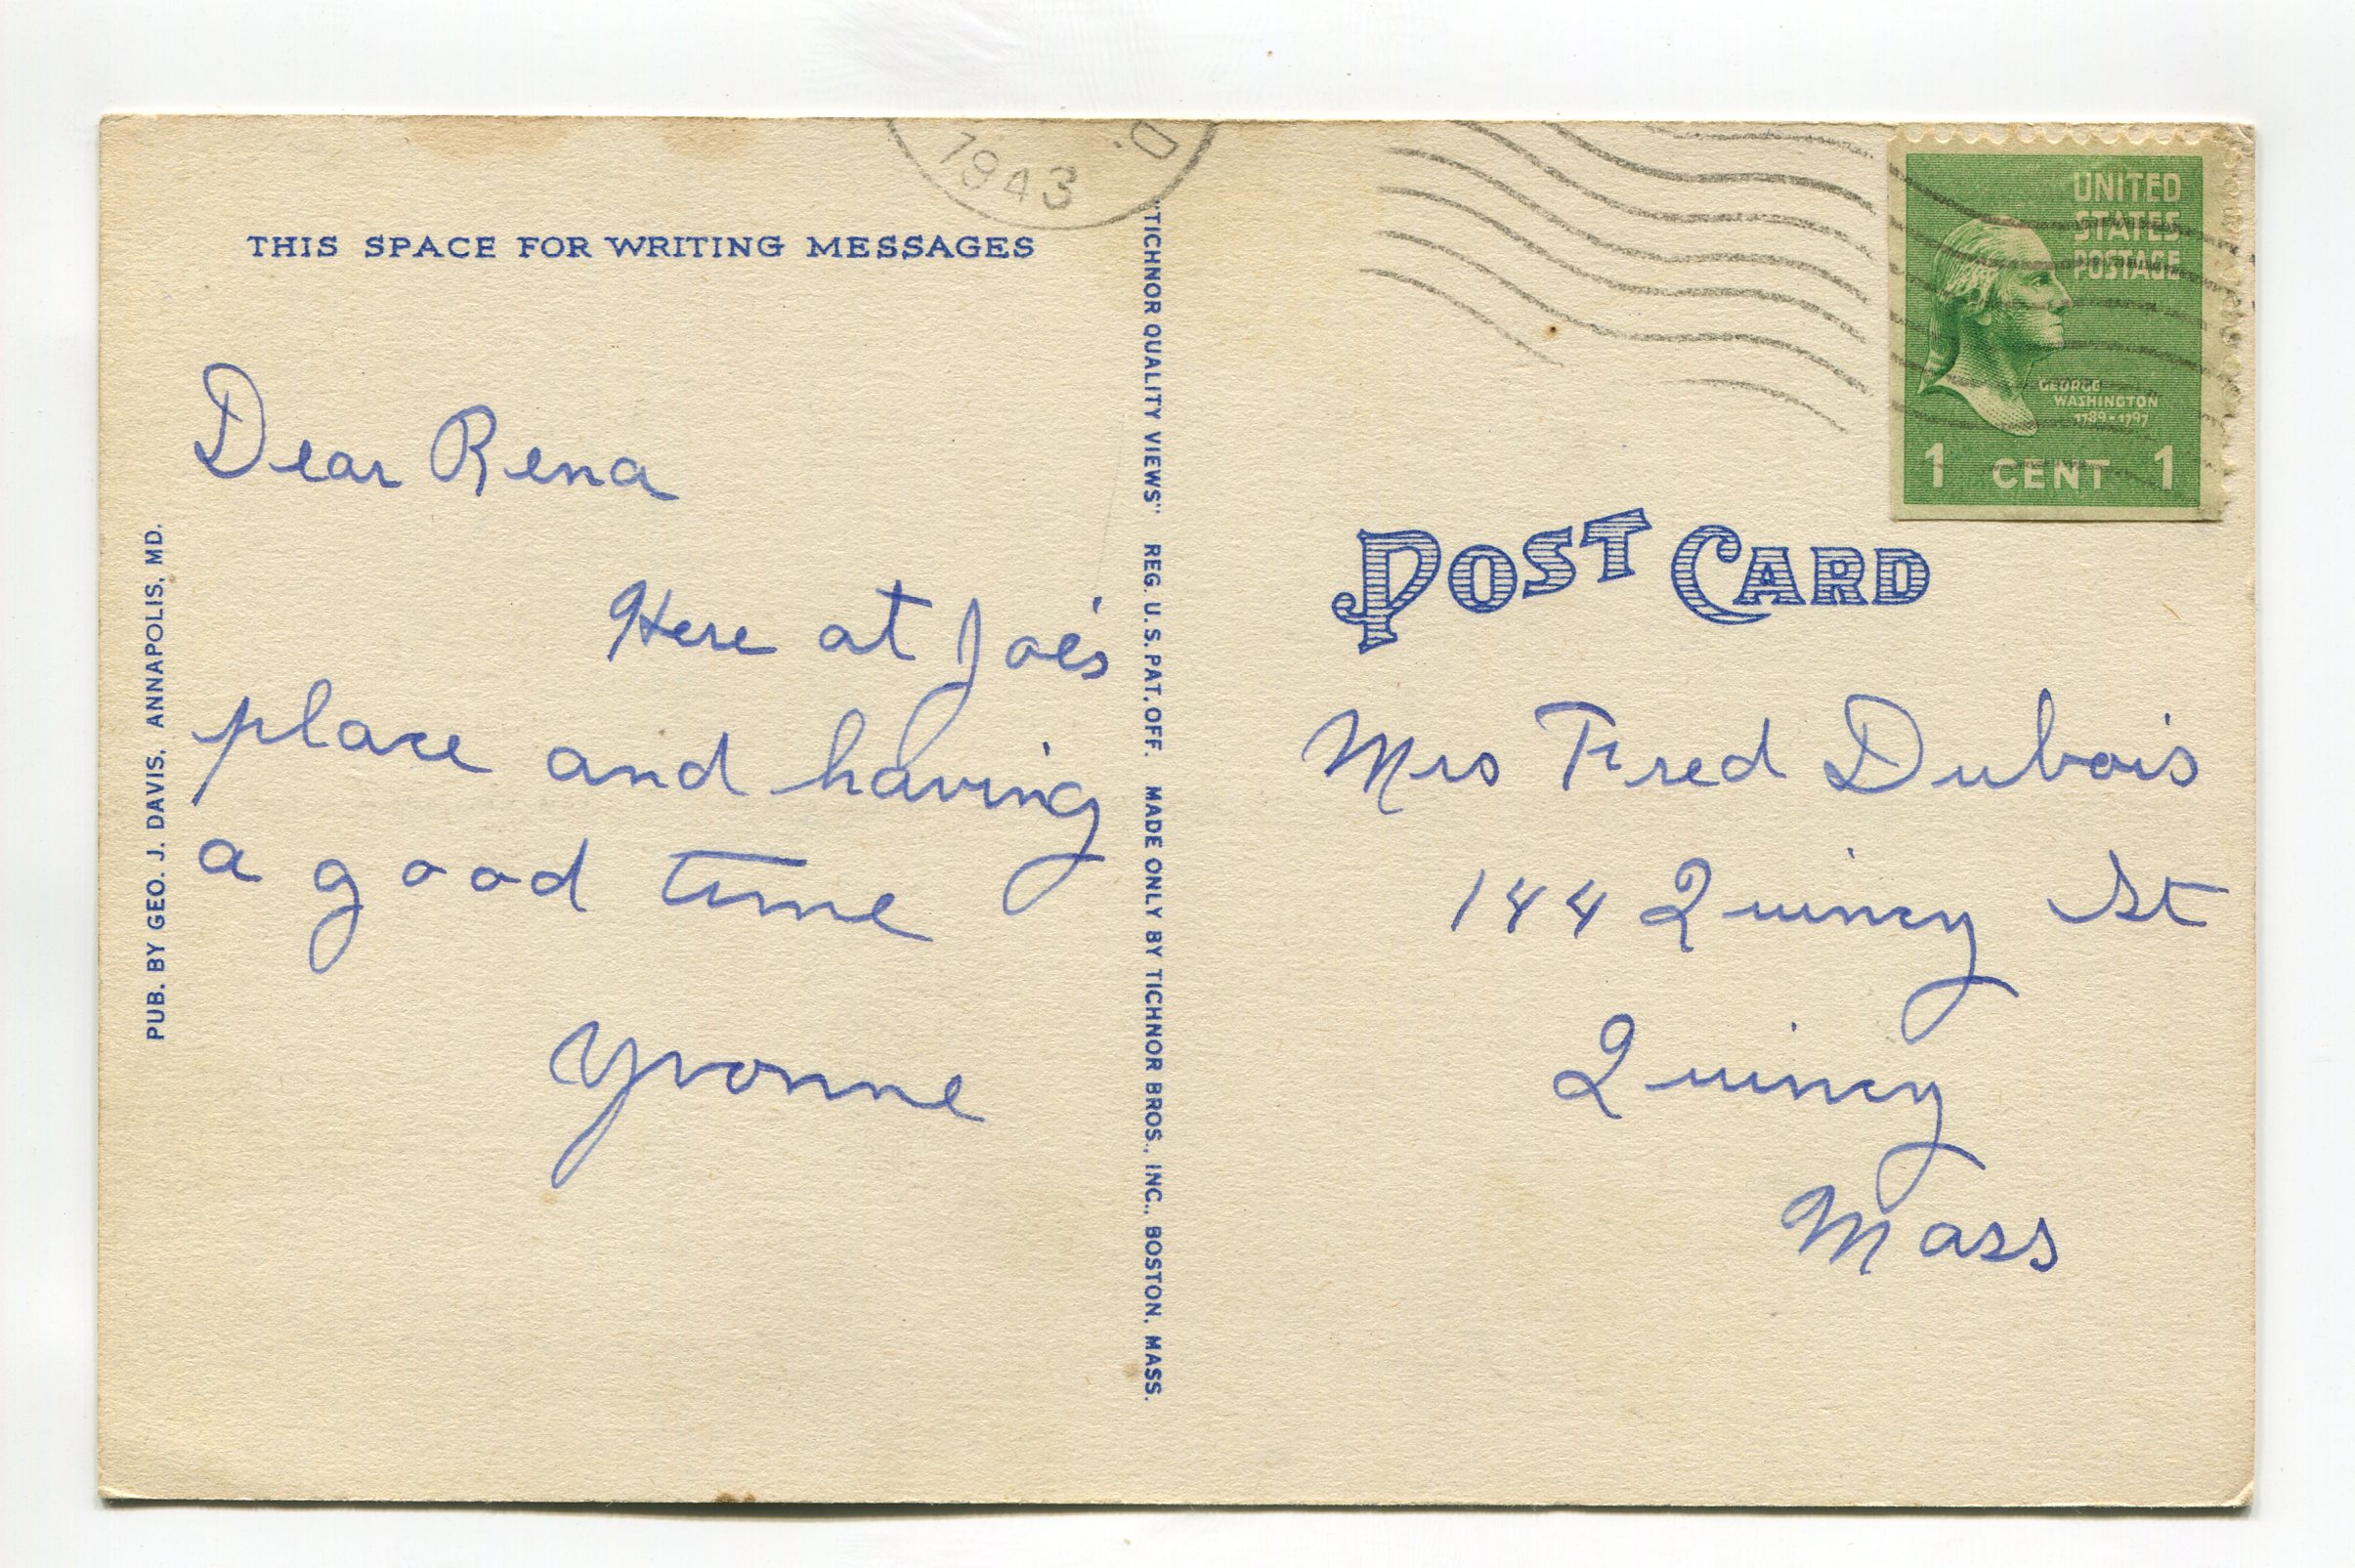 1943
.D
THIS SPACE FOR WRITING MESSAGES
Dear Rena
Here at Joe's
place and having
a good time
Yvonne
PUB. BY GEO. J. DAVIS, ANNAPOLIS, MD.
"TICHNOR QUALITY VIEWS" REG. U. S. PAT. OFF. MADE ONLY BY TICHNOR BROS., INC., BOSTON, MASS.
UNITED
STATES
POSTAGE
GEORGE
WASHINGTON
1789-1797
1 CENT 1
POST CARD
Mrs Fred Dubois
144 Quincy St
Quincy
Mass